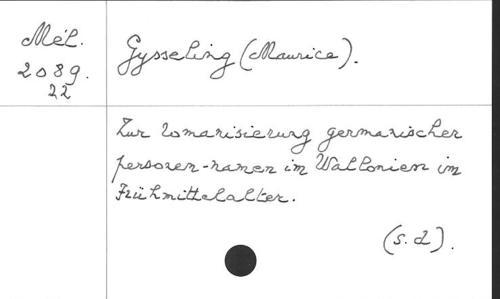 Mél.
2089.
22
Gysseling (Maurice).
Zur Romanisierung germanischer
personen-namen im Wallonien im
Frühmittelalter.
(s.d).